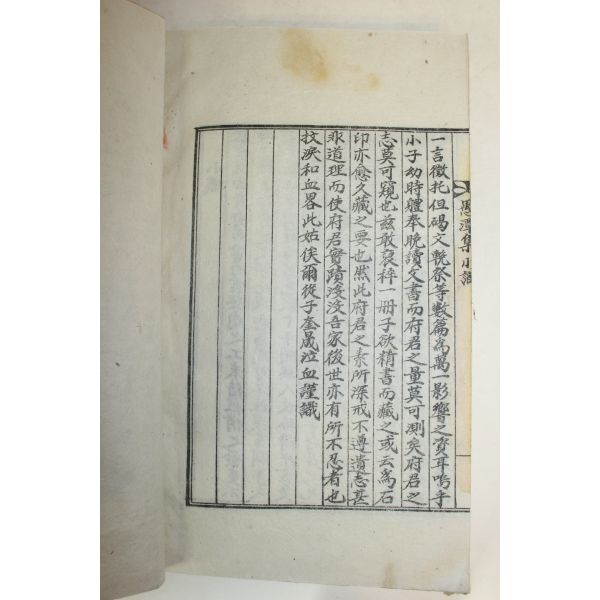 愚潭集小識
一言徵托但碣文輓祭等數篇爲萬一影響之資耳嗚乎
小子幼時軆奉晩讀文書而府君之量莫可測矣府君之
志莫可窺也玆敢裒稡一冊子欲精書而藏之或云爲石
印亦愈久藏之要也然此府君之素所深戒不遵遺志甚
非道理而使府君實蹟湥沒吾家後世亦有所不忍者也
抆淚和血畧此姑俟爾從子奎晟泣血謹識